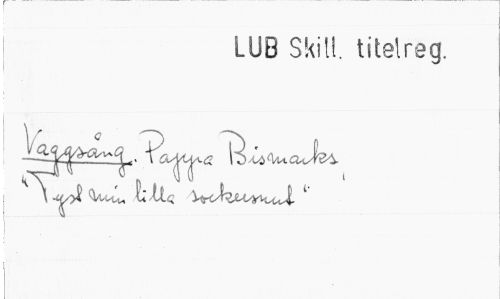 LUB Skill. titelreg.
Vaggsång. Pappa Bismarks,
"Tyst min lilla sockersnut"